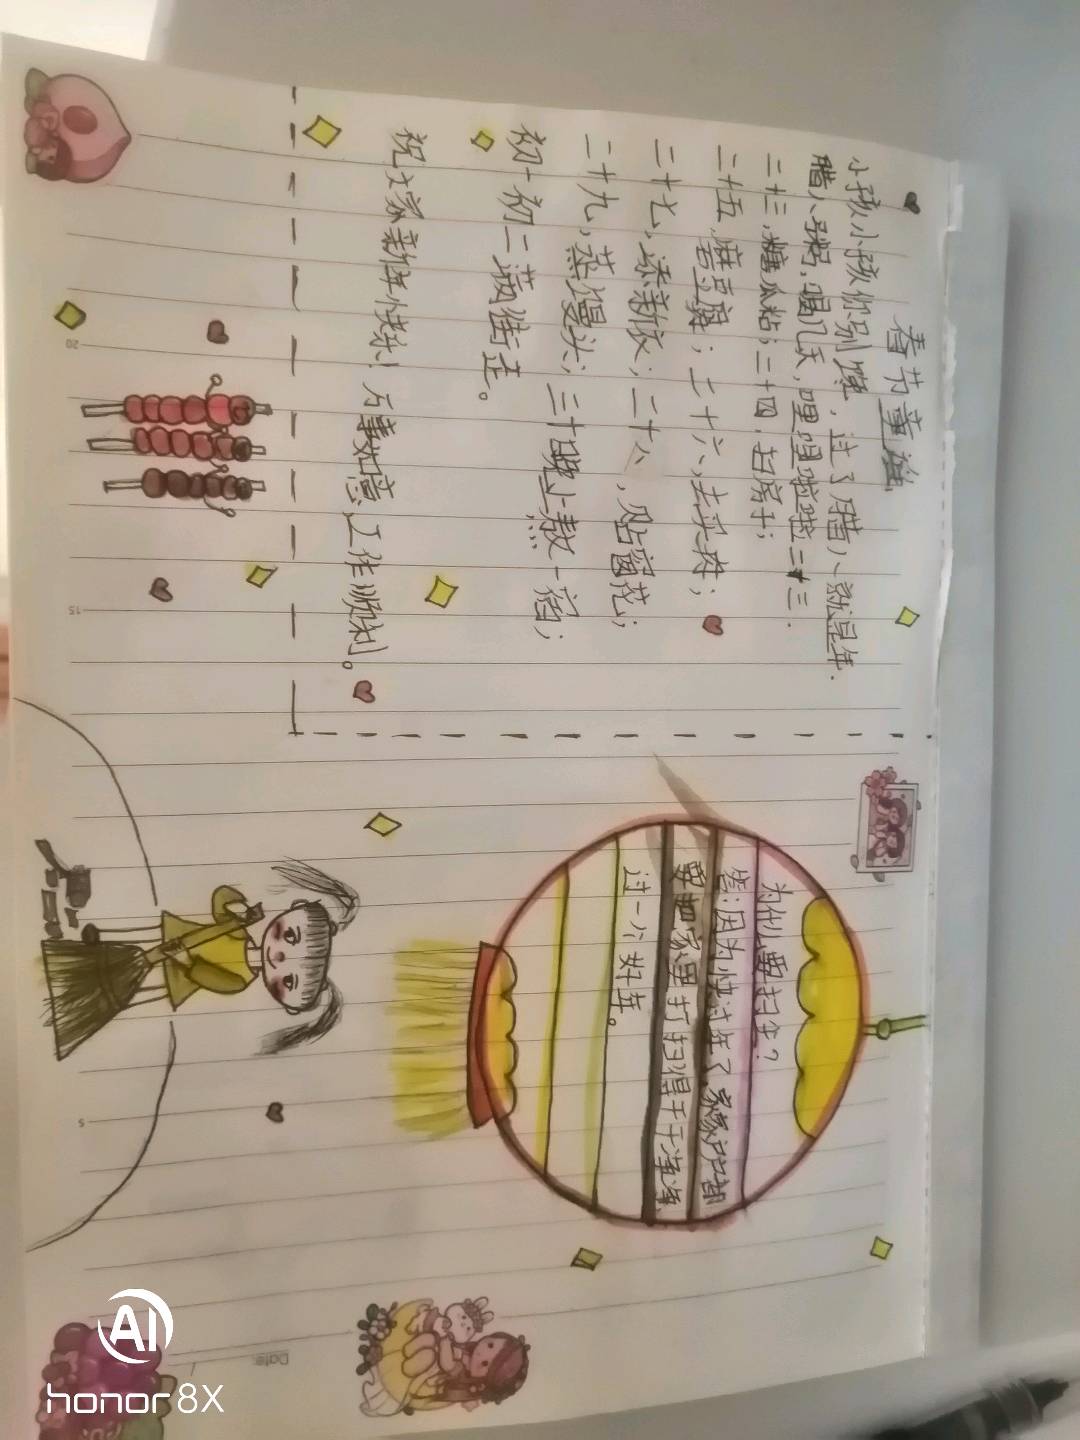 春节童谣
小孩小孩你别馋，过了腊八就是年.
腊八粥,喝几天,哩哩啦啦二十三.
二十三,糖瓜粘;二十四,扫房子;
二十五,磨豆腐;二十六,去买猪;
二十七,添新衣;二十八,贴窗花;
二十九,蒸馒头;三十晚上熬一宿;
初一初二满街走。
祝大家新年快乐!万事如意,工作顺利。
为什么要扫尘?
答:因为快过年了,家家户户都
要把家里打扫得干干净净,
过一个好年。
20
15
5
Date:
AI
honor 8X